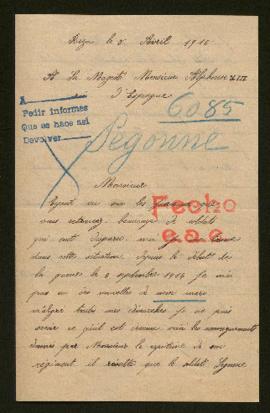 le 5 Avril 1916
A Sa Majesté Monsieur Alphonse XIII
d'Espagne
A
Pedir informes
Que se hace así
Devolver
6085
Segonne
Monsieur
Ayant vu sur les journaux que
vous retrouvez beaucoup de soldats
qui ont disparu
dans cette situation depuis le début de
la guerre le 2 septembre 1914 je n'ai
pas eu des nouvelles de mon mari
malgré toutes mes démarches je ne puis
savoir ce qu'il est devenu
Fecho
e.a.e.
donnés par Monsieur le capitaine de son
régiment il résulte que le soldat Segonne